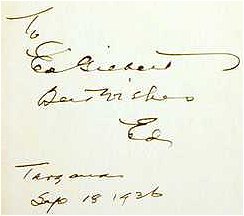 To
Ed Gilbert
Best Wishes
Ed
Tarzana
Sep 18 1926